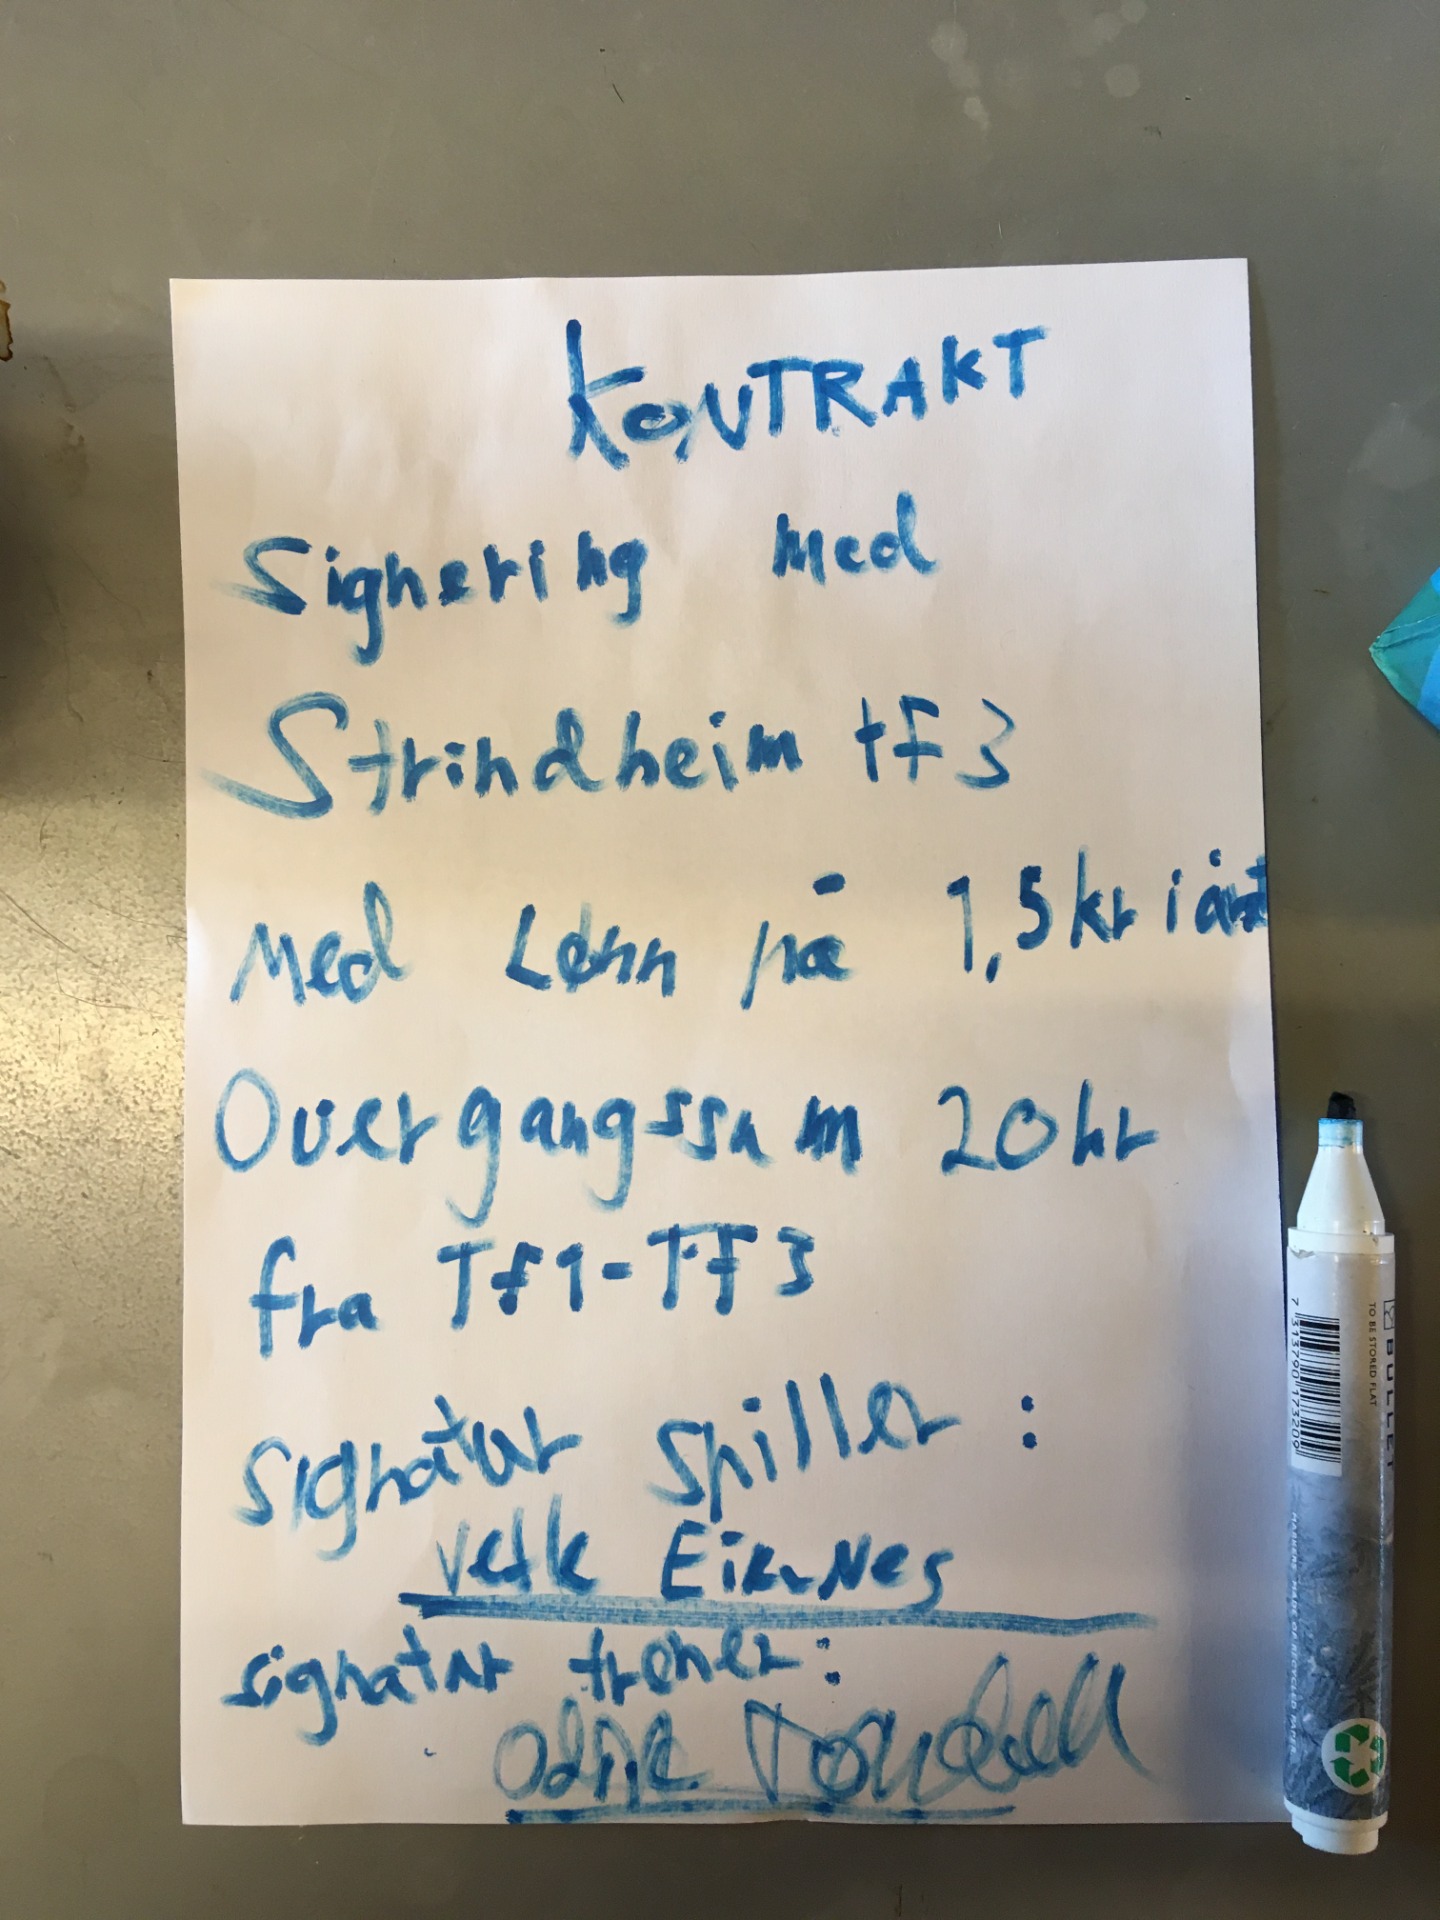 KONTRAKT
Signering med
Strindheim tF3
Med Lønn på 1,5kr i året
Overgangssum 20kr
fra TF1-TF3
Signatur Spiller :
Eiknes
signatur trener:
BULLET
TO BE STORED FLAT
7 313790 173209